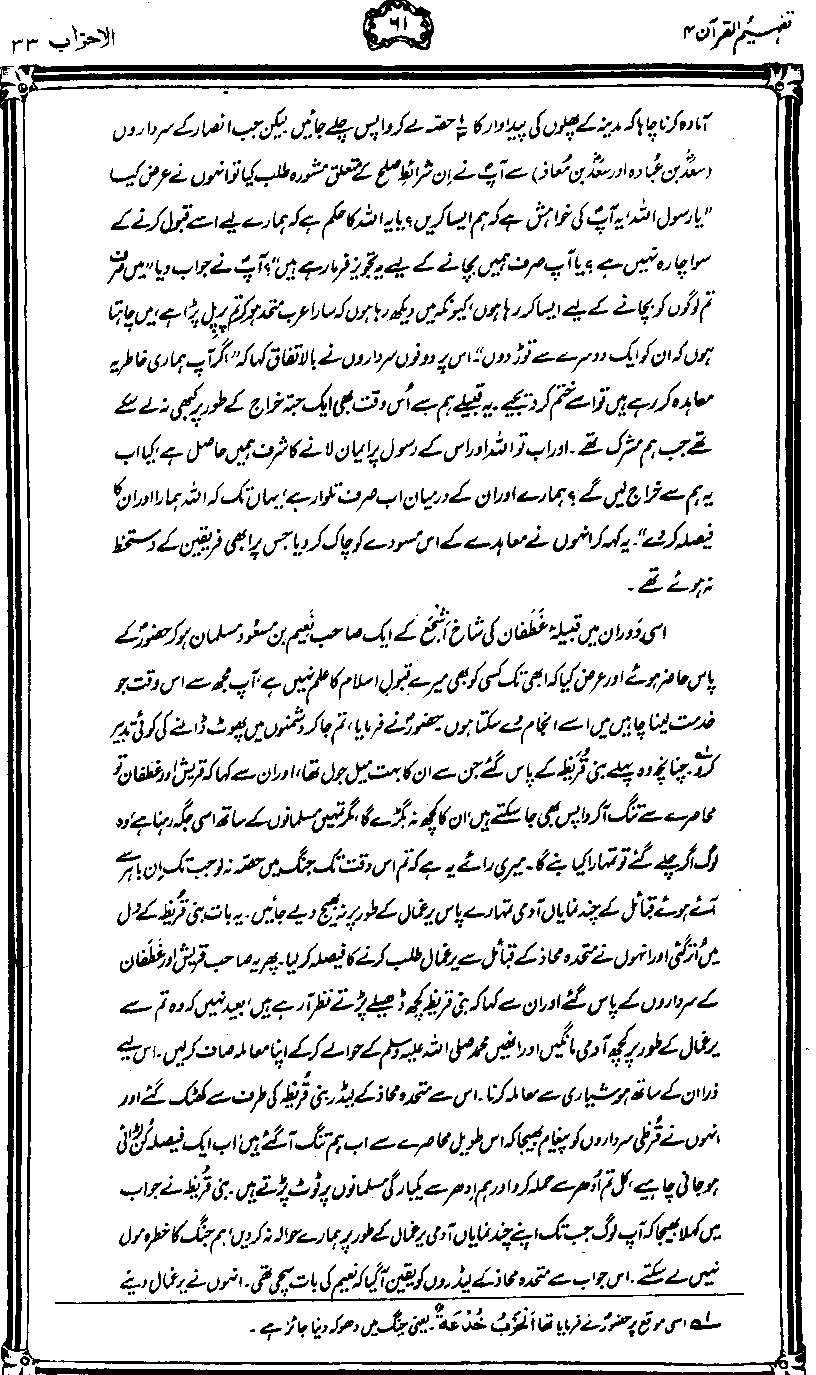 تفہیم القرآن ۴
۶۱
الاحزاب ۳۳
آمادہ کرنا چاہا کہ مدینہ کے پھلوں کی پیداوار کا ⅓ حصہ لے کر واپس چلے جائیں لیکن جب انصار کے سرداروں
(سعدؓ بن عُبادہ اور سعدؓ بن مُعاذ) سے آپؐ نے اِن شرائطِ صلح کے متعلق مشورہ طلب کیا تو انہوں نے عرض کیا
”یا رسول اللہ، یہ آپؐ کی خواہش ہے کہ ہم ایسا کریں؟ یا یہ اللہ کا حکم ہے کہ ہمارے لیے اسے قبول کرنے کے
سوا چارہ نہیں ہے؟ یا آپ صرف ہمیں بچانے کے لیے یہ تجویز فرما رہے ہیں“؟ آپؐ نے جواب دیا ”میں صرف
تم لوگوں کو بچانے کے لیے ایسا کر رہا ہوں، کیونکہ میں دیکھ رہا ہوں کہ سارا عرب متحد ہو کر تم پر پل پڑا ہے، میں چاہتا
ہوں کہ ان کو ایک دوسرے سے توڑ دوں“۔ اس پر دونوں سرداروں نے بالاتفاق کہا کہ ”اگر آپ ہماری خاطر یہ
معاہدہ کر رہے ہیں تو اسے ختم کر دیجیے۔ یہ قبیلے ہم سے اُس وقت بھی ایک حبّہ خراج کے طور پر کبھی نہ لے سکے
تھے جب ہم مشرک تھے۔ اور اب تو اللہ اور اس کے رسول پر ایمان لانے کا شرف ہمیں حاصل ہے، کیا اب
یہ ہم سے خراج لیں گے؟ ہمارے اور ان کے درمیان اب صرف تلوار ہے، یہاں تک کہ اللہ ہمارا اور ان کا
فیصلہ کر دے“۔ یہ کہہ کر انہوں نے معاہدے کے اس مسودے کو چاک کر دیا جس پر ابھی فریقین کے دستخط
نہ ہوئے تھے۔
اسی دَوران میں قبیلۂ غَطَفان کی شاخ اَشْجَع کے ایک صاحب نُعَیم بن مسعود مسلمان ہو کر حضورؐ کے
پاس حاضر ہوئے اور عرض کیا کہ ابھی تک کسی کو بھی میرے قبولِ اسلام کا علم نہیں ہے، آپ مجھ سے اس وقت جو
خدمت لینا چاہیں میں اسے انجام دے سکتا ہوں۔ حضورؐ نے فرمایا، تم جا کر دشمنوں میں پھوٹ ڈالنے کی کوئی تدبیر
کرو۱؎ چنانچہ وہ پہلے بنی قُرَیظہ کے پاس گئے جن سے ان کا بہت میل جول تھا، اور ان سے کہا کہ قریش اور غطفان تو
محاصرے سے تنگ آ کر واپس بھی جا سکتے ہیں، ان کا کچھ نہ بگڑے گا، مگر تمہیں مسلمانوں کے ساتھ اسی جگہ رہنا ہے، وہ
لوگ اگر چلے گئے تو تمہارا کیا بنے گا۔ میری رائے یہ ہے کہ تم اس وقت تک جنگ میں حصہ نہ لو جب تک اِن باہر سے
آئے ہوئے قبائل کے چند نمایاں آدمی تمہارے پاس یرغمال کے طور پر نہ بھیج دیے جائیں۔ یہ بات بنی قُرَیظہ کے دل
میں اُتر گئی اور انہوں نے متحدہ محاذ کے قبائل سے یرغمال طلب کرنے کا فیصلہ کر لیا۔ پھر یہ صاحب قریش اور غَطَفان
کے سرداروں کے پاس گئے اور ان سے کہا کہ بنی قریظہ کچھ ڈھیلے پڑتے نظر آ رہے ہیں، بعید نہیں کہ وہ تم سے
یرغمال کے طور پر کچھ آدمی مانگیں اور انھیں محمد صلی اللہ علیہ وسلم کے حوالے کر کے اپنا معاملہ صاف کر لیں۔ اس لیے
ذرا ان کے ساتھ ہوشیاری سے معاملہ کرنا۔ اس سے متحدہ محاذ کے لیڈر بنی قُریظہ کی طرف سے کھٹک گئے اور
انہوں نے قُرظی سرداروں کو پیغام بھیجا کہ اس طویل محاصرے سے اب ہم تنگ آ گئے ہیں، اب ایک فیصلہ کُن لڑائی
ہو جانی چاہیے، کل تم اُدھر سے حملہ کرو اور ہم اِدھر سے یکبارگی مسلمانوں پر ٹوٹ پڑتے ہیں۔ بنی قُریظہ نے جواب
میں کہلا بھیجا کہ آپ لوگ جب تک اپنے چند نمایاں آدمی یرغمال کے طور پر ہمارے حوالہ نہ کر دیں، ہم جنگ کا خطرہ مول
نہیں لے سکتے۔ اس جواب سے متحدہ محاذ کے لیڈروں کو یقین آ گیا کہ نُعیم کی بات سچی تھی۔ انہوں نے یرغمال دینے
۱؎ اسی موقع پر حضورؐ نے فرمایا تھا اَلْحَرْبُ خُدْعَةٌ۔ یعنی جنگ میں دھوکہ دینا جائز ہے۔